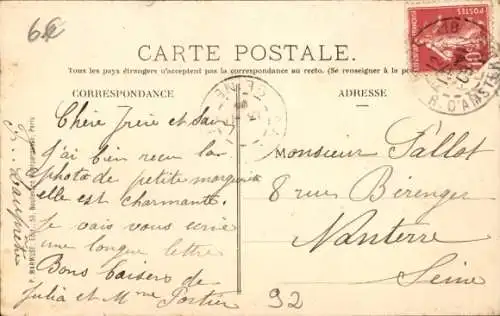 6€
CARTE POSTALE.
Tous les pays étrangers n'acceptent pas la correspondance au recto. (Se renseigner à la
CORRESPONDANCE
ADRESSE
Chère frère et Sœur
J'ai bien reçu la
photo de petite marguerite
elle est charmante.
Je vais vous écrire
une longue lettre
Bons baisers de
Julia et Mme Portier
Monsieur Pallot
8 rue Bérenger
Nanterre
Seine
92
POSTES
10
R. D'AMSTER